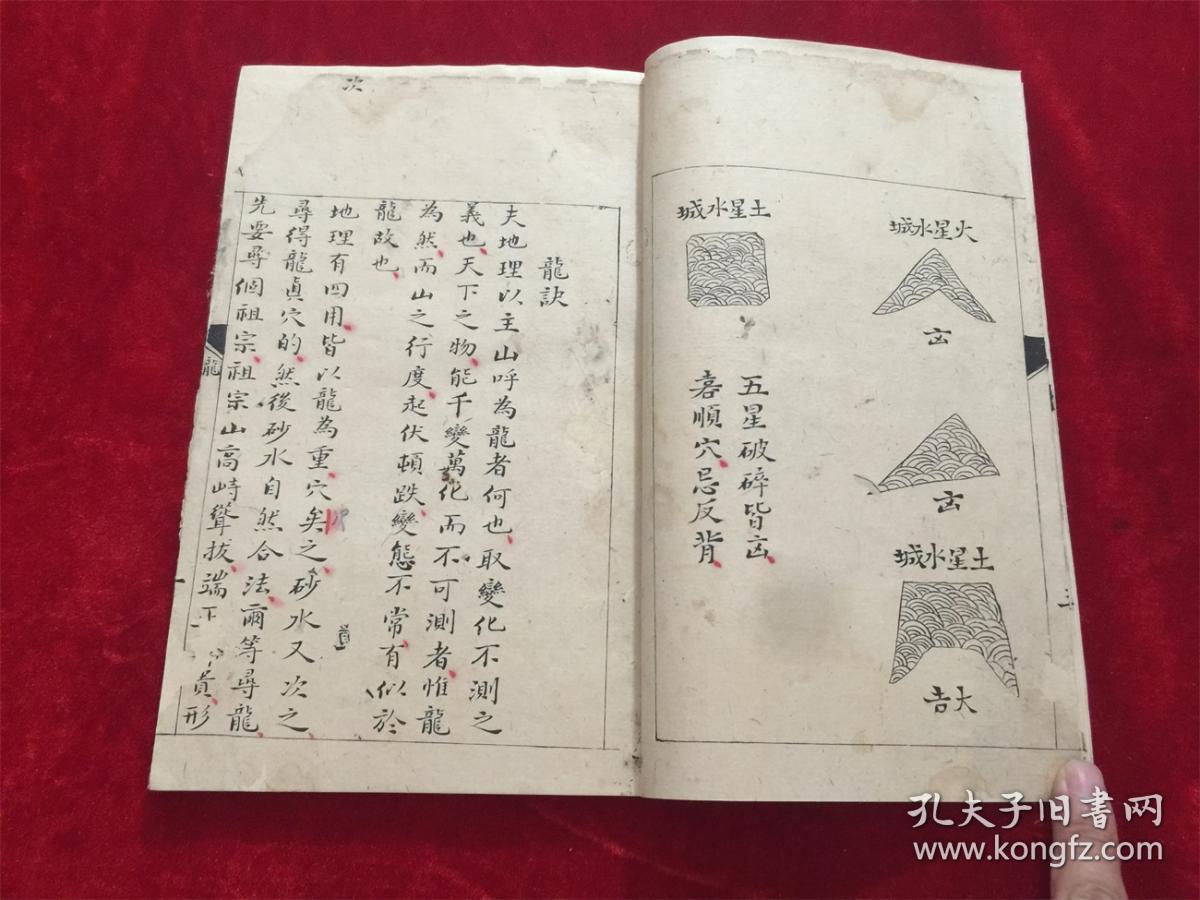 火星水城
㓙
㓙
土星水城
大吉
土星水城
五星破碎皆㓙
喜順穴忌反背
三
龍訣
夫地理以主山呼為龍者何也取變化不測之
義也天下之物能千變萬化而不可測者惟龍
為然而山之行度起伏頓跌變態不常有似於
龍故也
地理有四用皆以龍為重穴矣之砂水又次之
次
尋得龍真穴的然後砂水自然合法爾等尋龍
先要尋個祖宗祖宗山高峙聳拔端
貴形
次
龍
孔夫子旧书网
www.kongfz.com